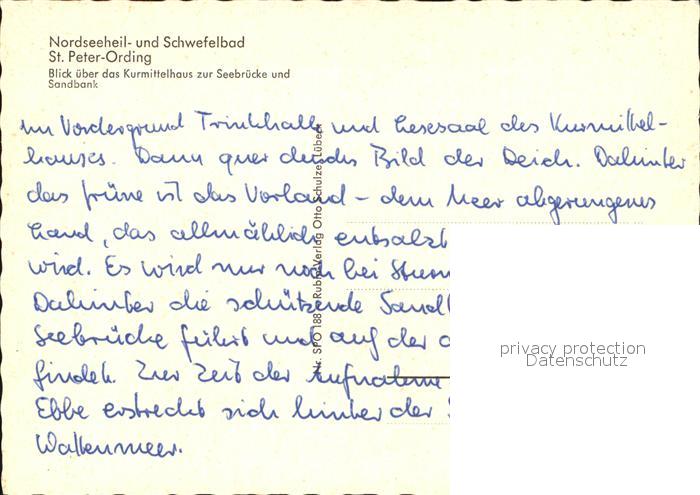 Nordseeheil- und Schwefelbad
St. Peter-Ording
Blick über das Kurmittelhaus zur Seebrücke und
Sandbank
Im Vordergrund Trinkhalle und Lesesaal des Kurmittel-
hauses. Dann quer durchs Bild der Deich. Dahinter
das grüne ist das Vorland – dem Meer abgerungenes
Land, das allmählich entsalzt
wird. Es wird nur noch bei
Dahinter die schützende
Seebrücke führt und auf der
findet. Zur Zeit der Aufnahme
Ebbe erstreckt sich hinter der
Wattenmeer.
Nr. SPO 188 Rubin-Verlag Otto Schulze, Lübeck
privacy protection
Datenschutz